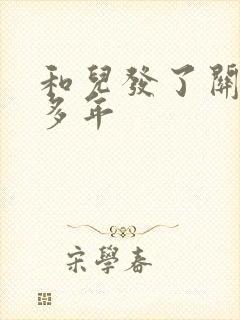 和兒發了關
多年
宋學春